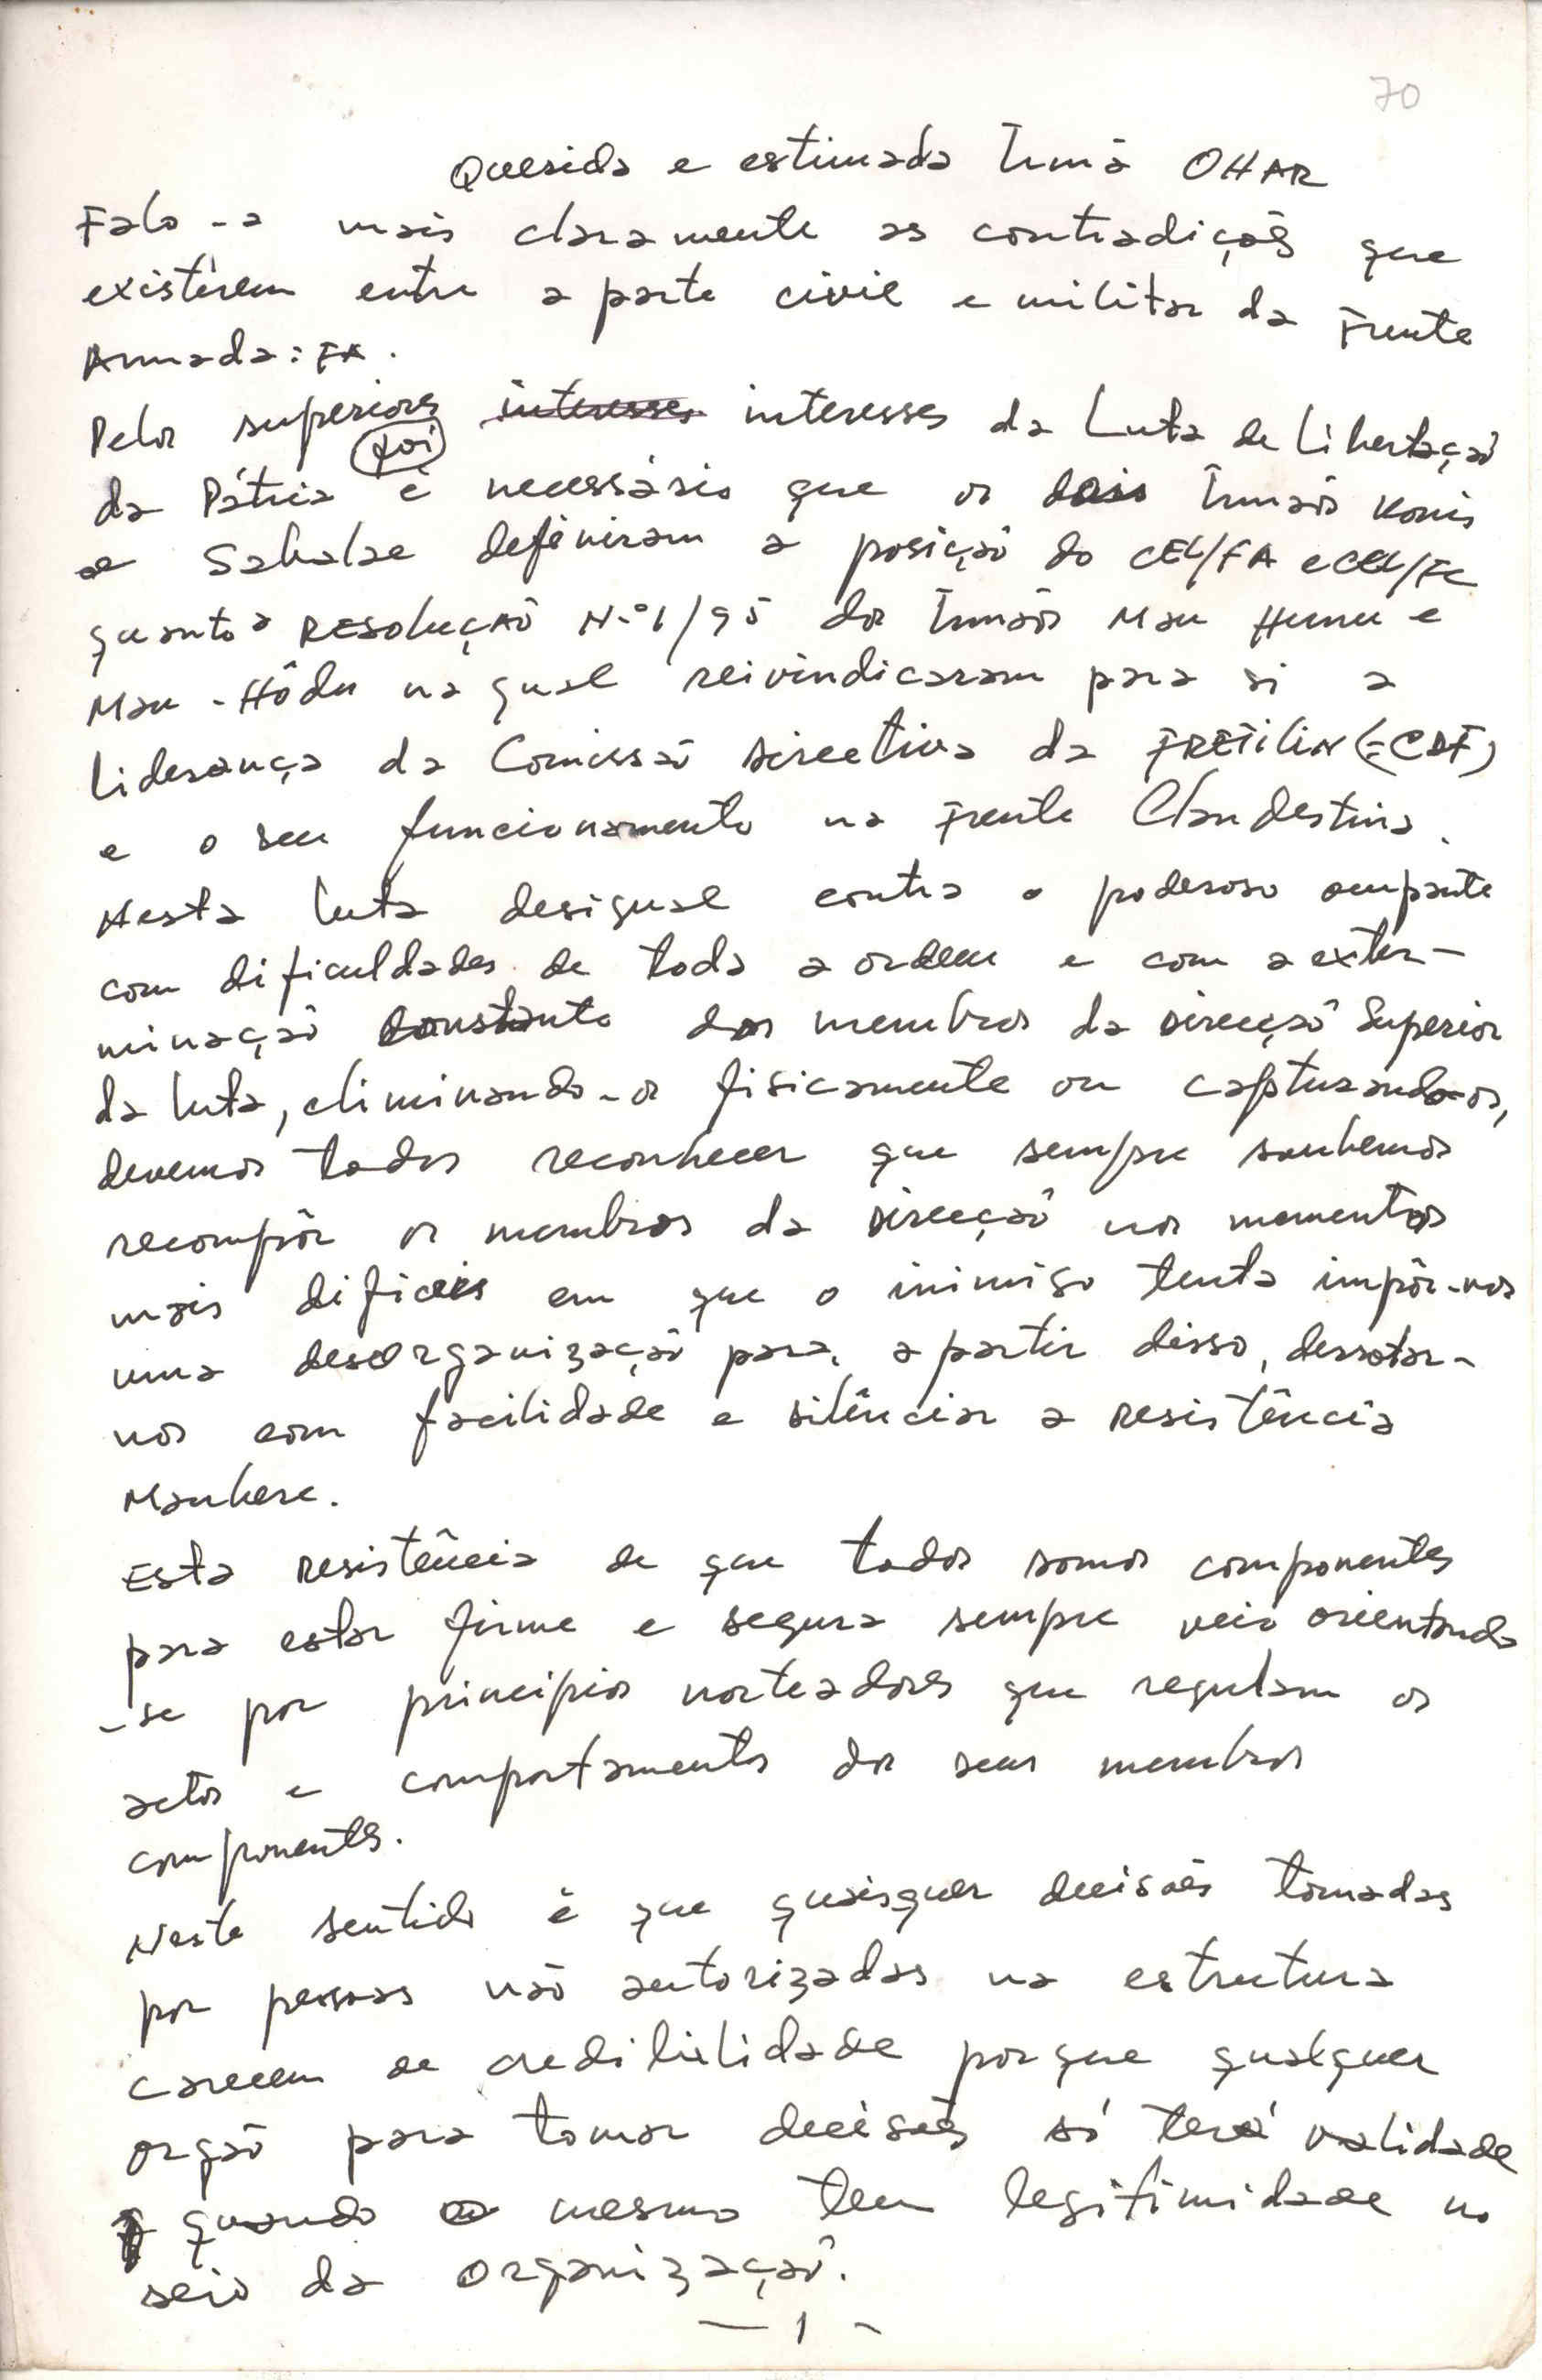 70
Querida e estimada Irmã OHAR
Falo-a mais claramente as contradições que
existirem entre a parte civil e militar da Frente
Armada: FA.
Pelos superiores interesses interesses da Luta de Libertação
da Pátria foi é necessário que os dois Irmãos Konis
e Sabalae definiram a posição do CEL/FA e CEL/FC
quanto a RESOLUÇÃO N.º 1/95 dos Irmãos Mau Hunu e
Mau-Hôdu na qual reivindicaram para si a
liderança da Comissão Directiva da FRETILIN (=CDF)
e o seu funcionamento na Frente Clandestina.
Nesta luta desigual contra o poderoso ocupante
com dificuldades de toda a ordem e com a exter-
minação constante dos membros da Direcção Superior
da luta, eliminando-os fisicamente ou capturando-os,
devemos todos reconhecer que sempre soubemos
recompôr os membros da Direcção nos momentos
mais difíceis em que o inimigo tenta impôr-nos
uma desorganização para, a partir disso, derrotar-
nos com facilidade e silênciar a resistência
Maubere.
Esta resistência de que todos somos componentes
para estar firme e segura sempre veio orientando
-se por princípios norteadores que regulam os
actos e comportamentos dos seus membros
componentes.
Neste sentido é que quaisquer decisões tomadas
por pessoas não autorizadas na estrutura
carecem de credibilidade porque qualquer
orgão para tomar decisões só terá validade
quando o mesmo tem legitimidade no
seio da organização.
— 1 -